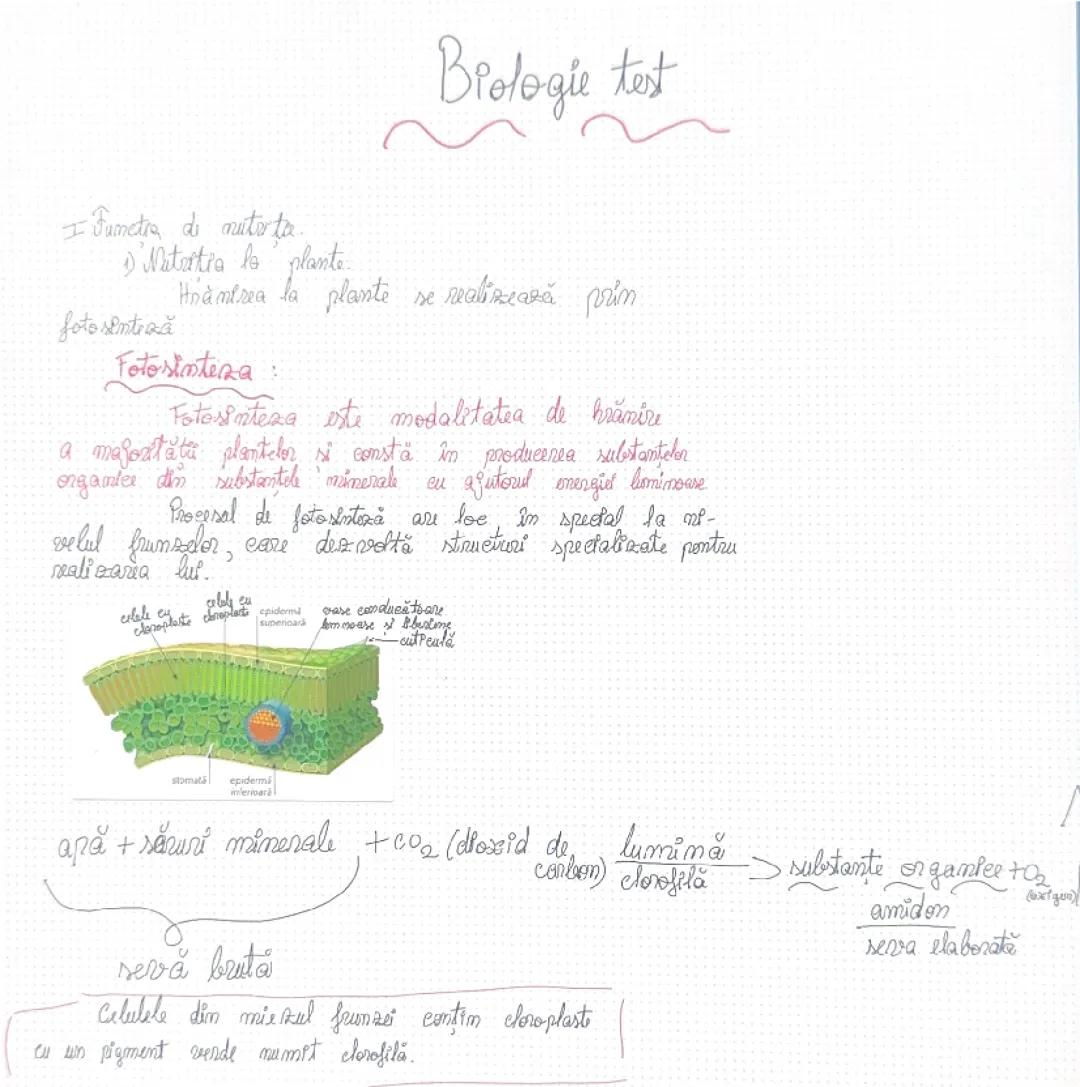 Biologie test
I Funcția de nutriție.
1) Nutriția la plante.
Hrănirea la plante se realizează prin
fotosinteză
Fotosinteza :
Fotosinteza este modalitatea de hrănire
a majorității plantelor si constă în producerea substantelor
organice din substantele minerale cu ajutorul energiei luminoase
Procesul de fotosinteză are loc, în special la ni-
velul frunzelor, care dezvoltă structuri specializate pentru
realizarea lui.
celule cu
cloroplaste
celule cu
cloroplaste
epidermă
superioară
vase conducătoare
lemnoase si liberiene
cuticulă
stomată
epidermă
inferioară
apă + săruri minerale + CO2 (dioxid de
carbon)
lumină
clorofilă
substanțe organice + O2
(oxigen)
amidon
seva elaborată
sevă brută
Celulele din miezul frunzei conțin cloroplaste
cu un pigment verde numit clorofilă.